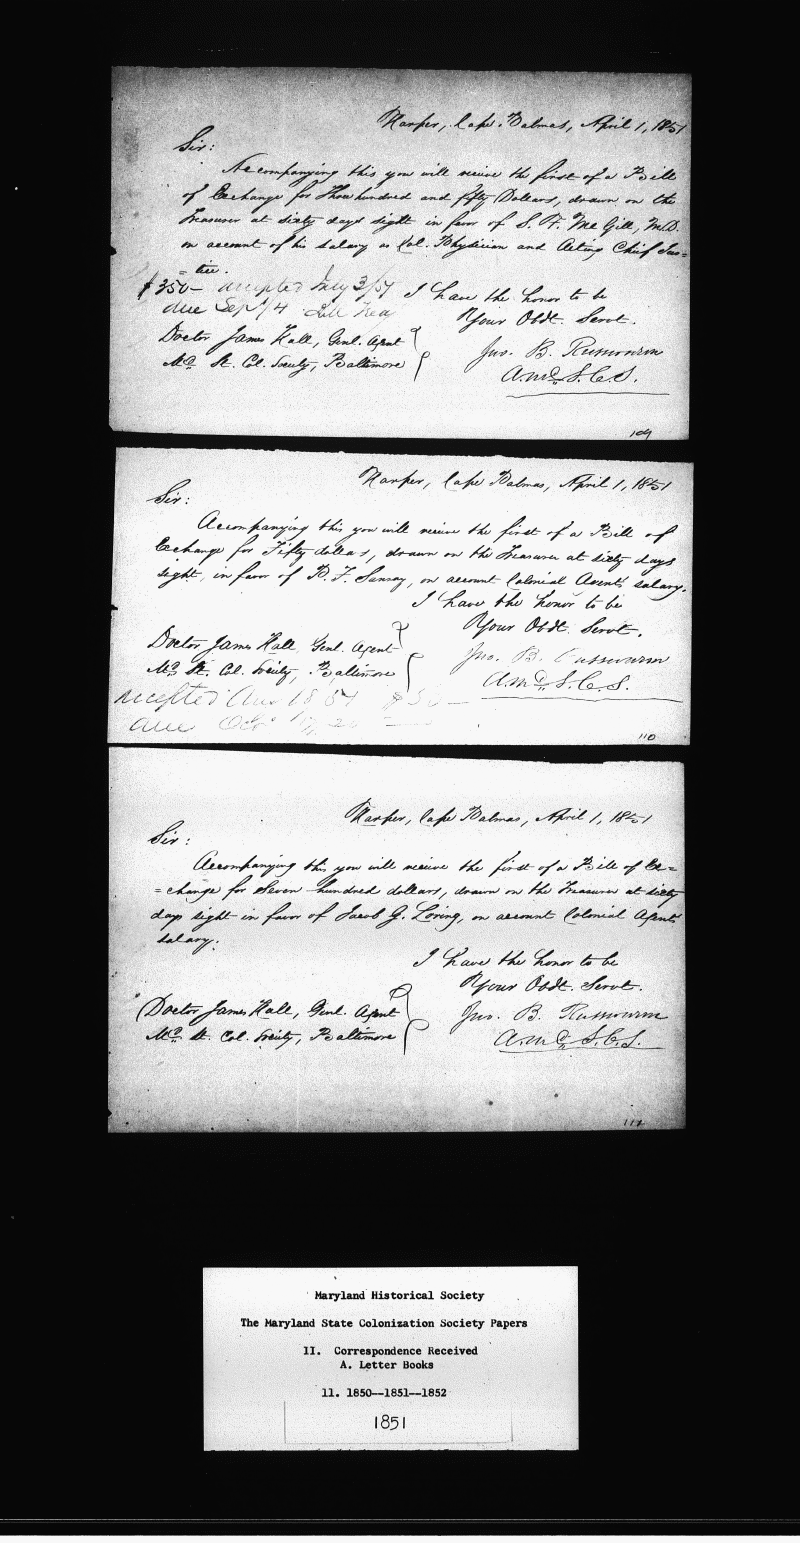 Harper, Cape Palmas, April 1, 1851
Sir:
Accompanying this you will receive the first of a Bill
of Exchange for Three hundred and fifty Dollars, drawn on the
Treasurer at sixty days sight in favor of S. F. Mc Gill, M.D.
on account of his salary as Col. Physician and Acting Chief Jus=
=tice.
$350— accepted July 3/51
due Sept 1/4
I have the honor to be
Your Obdt. Servt.
Doctor James Hall, Genl. Agent
Md. St. Col. Society, Baltimore
Jno. B. Russwurm
A. Md. S. C. S.
109
Harper, Cape Palmas, April 1, 1851
Sir:
Accompanying this you will receive the first of a Bill of
Exchange for Fifty dollars, drawn on the Treasurer at sixty days
sight, in favor of on account Colonial Agents salary.
I have the honor to be
Your Obdt. Servt.
Doctor James Hall, Genl. Agent
Md. St. Col. Society, Baltimore
Jno. B. Russwurm
A. Md. S. C. S.
accepted Aug 18 51 $50—
due Oct
110
Harper, Cape Palmas, April 1, 1851
Sir:
Accompanying this you will receive the first of a Bill of Ex=
=change for Seven hundred dollars, drawn on the Treasurer at sixty
days sight in favor of Jacob G. Loring, on account Colonial Agents
salary.
I have the honor to be
Your Obdt. Servt.
Doctor James Hall, Genl. Agent
Md. St. Col. Society, Baltimore
Jno. B. Russwurm
A. Md. S. C. S.
Maryland Historical Society
The Maryland State Colonization Society Papers
II. Correspondence Received
A. Letter Books
11. 1850--1851--1852
1851